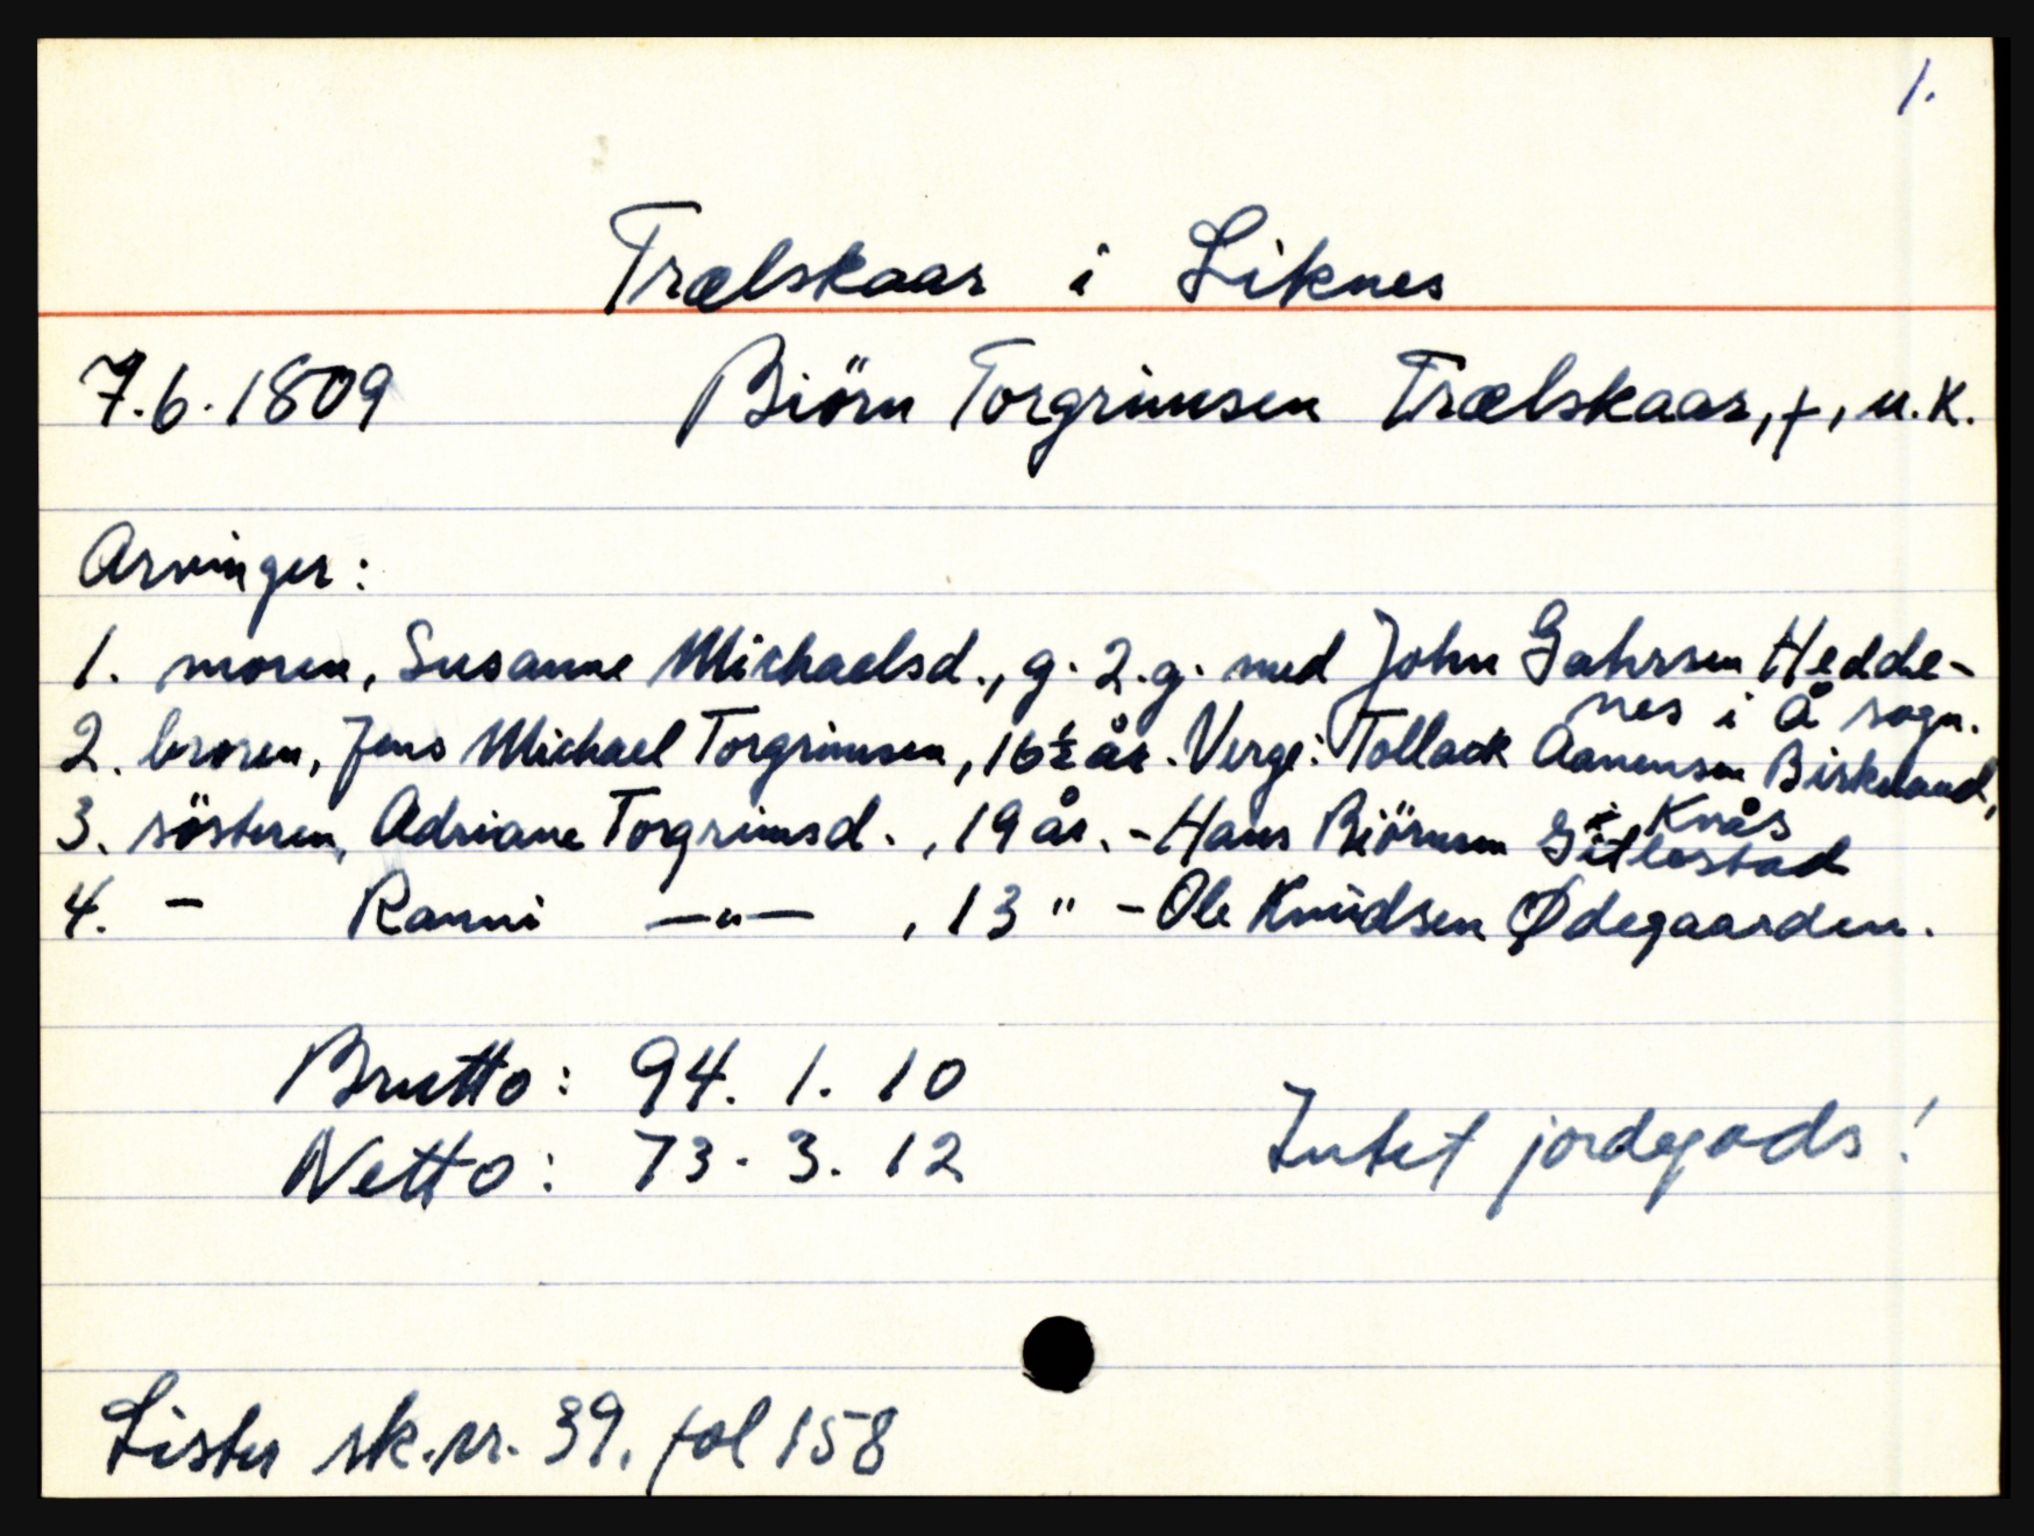 1.
Trælskaar i Liknes
7.6.1809 Biörn Torgrimsen Trælskaar, +, u.k.
Arvinger:
1. moren, Susanne Michaelsd., g. 2.g. med John Gahrsen Hedde-
nes i Å sogn.
2. broren, Jens Michael Torgrimsen, 16½ år. Verge: Tollack Aanensen Birkeland,
i Kvås
3. søsteren, Adriane Torgrimsd., 19 år. - Hans Biörnsen Gitlestad
4. - Ranni —"— , 13 " - Ole Knudsen Ødegaarden.
Brutto: 94. 1. 10
Netto: 73. 3. 12
Intet jordegods!
Lister sk.pr. 39. fol 158